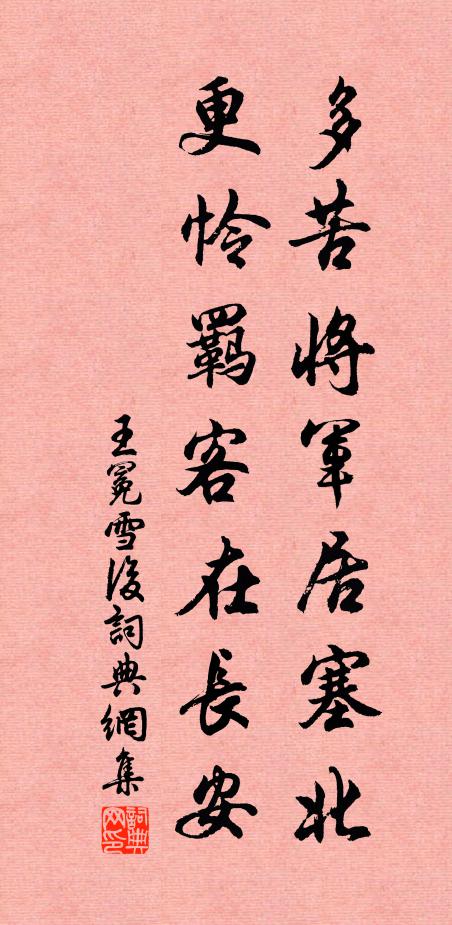 多苦將軍居塞北
更怜羁客在長安
王冕雪後詞典網集
詞典网印